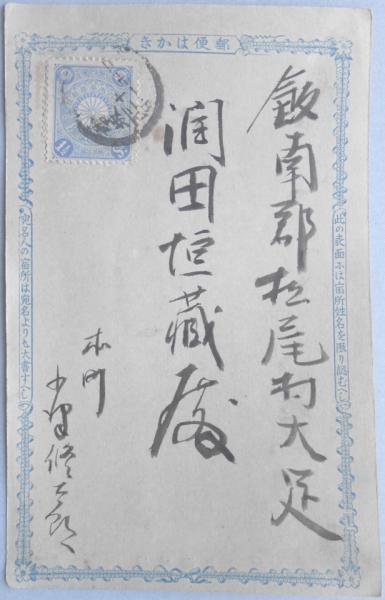 郵便はかき
此の表面には宿所姓名を限り認むへし
飯南郡松尾村大足
潤田垣藏殿
本町
宛名人の宿所は宛名より大書すへし
1½ Sn